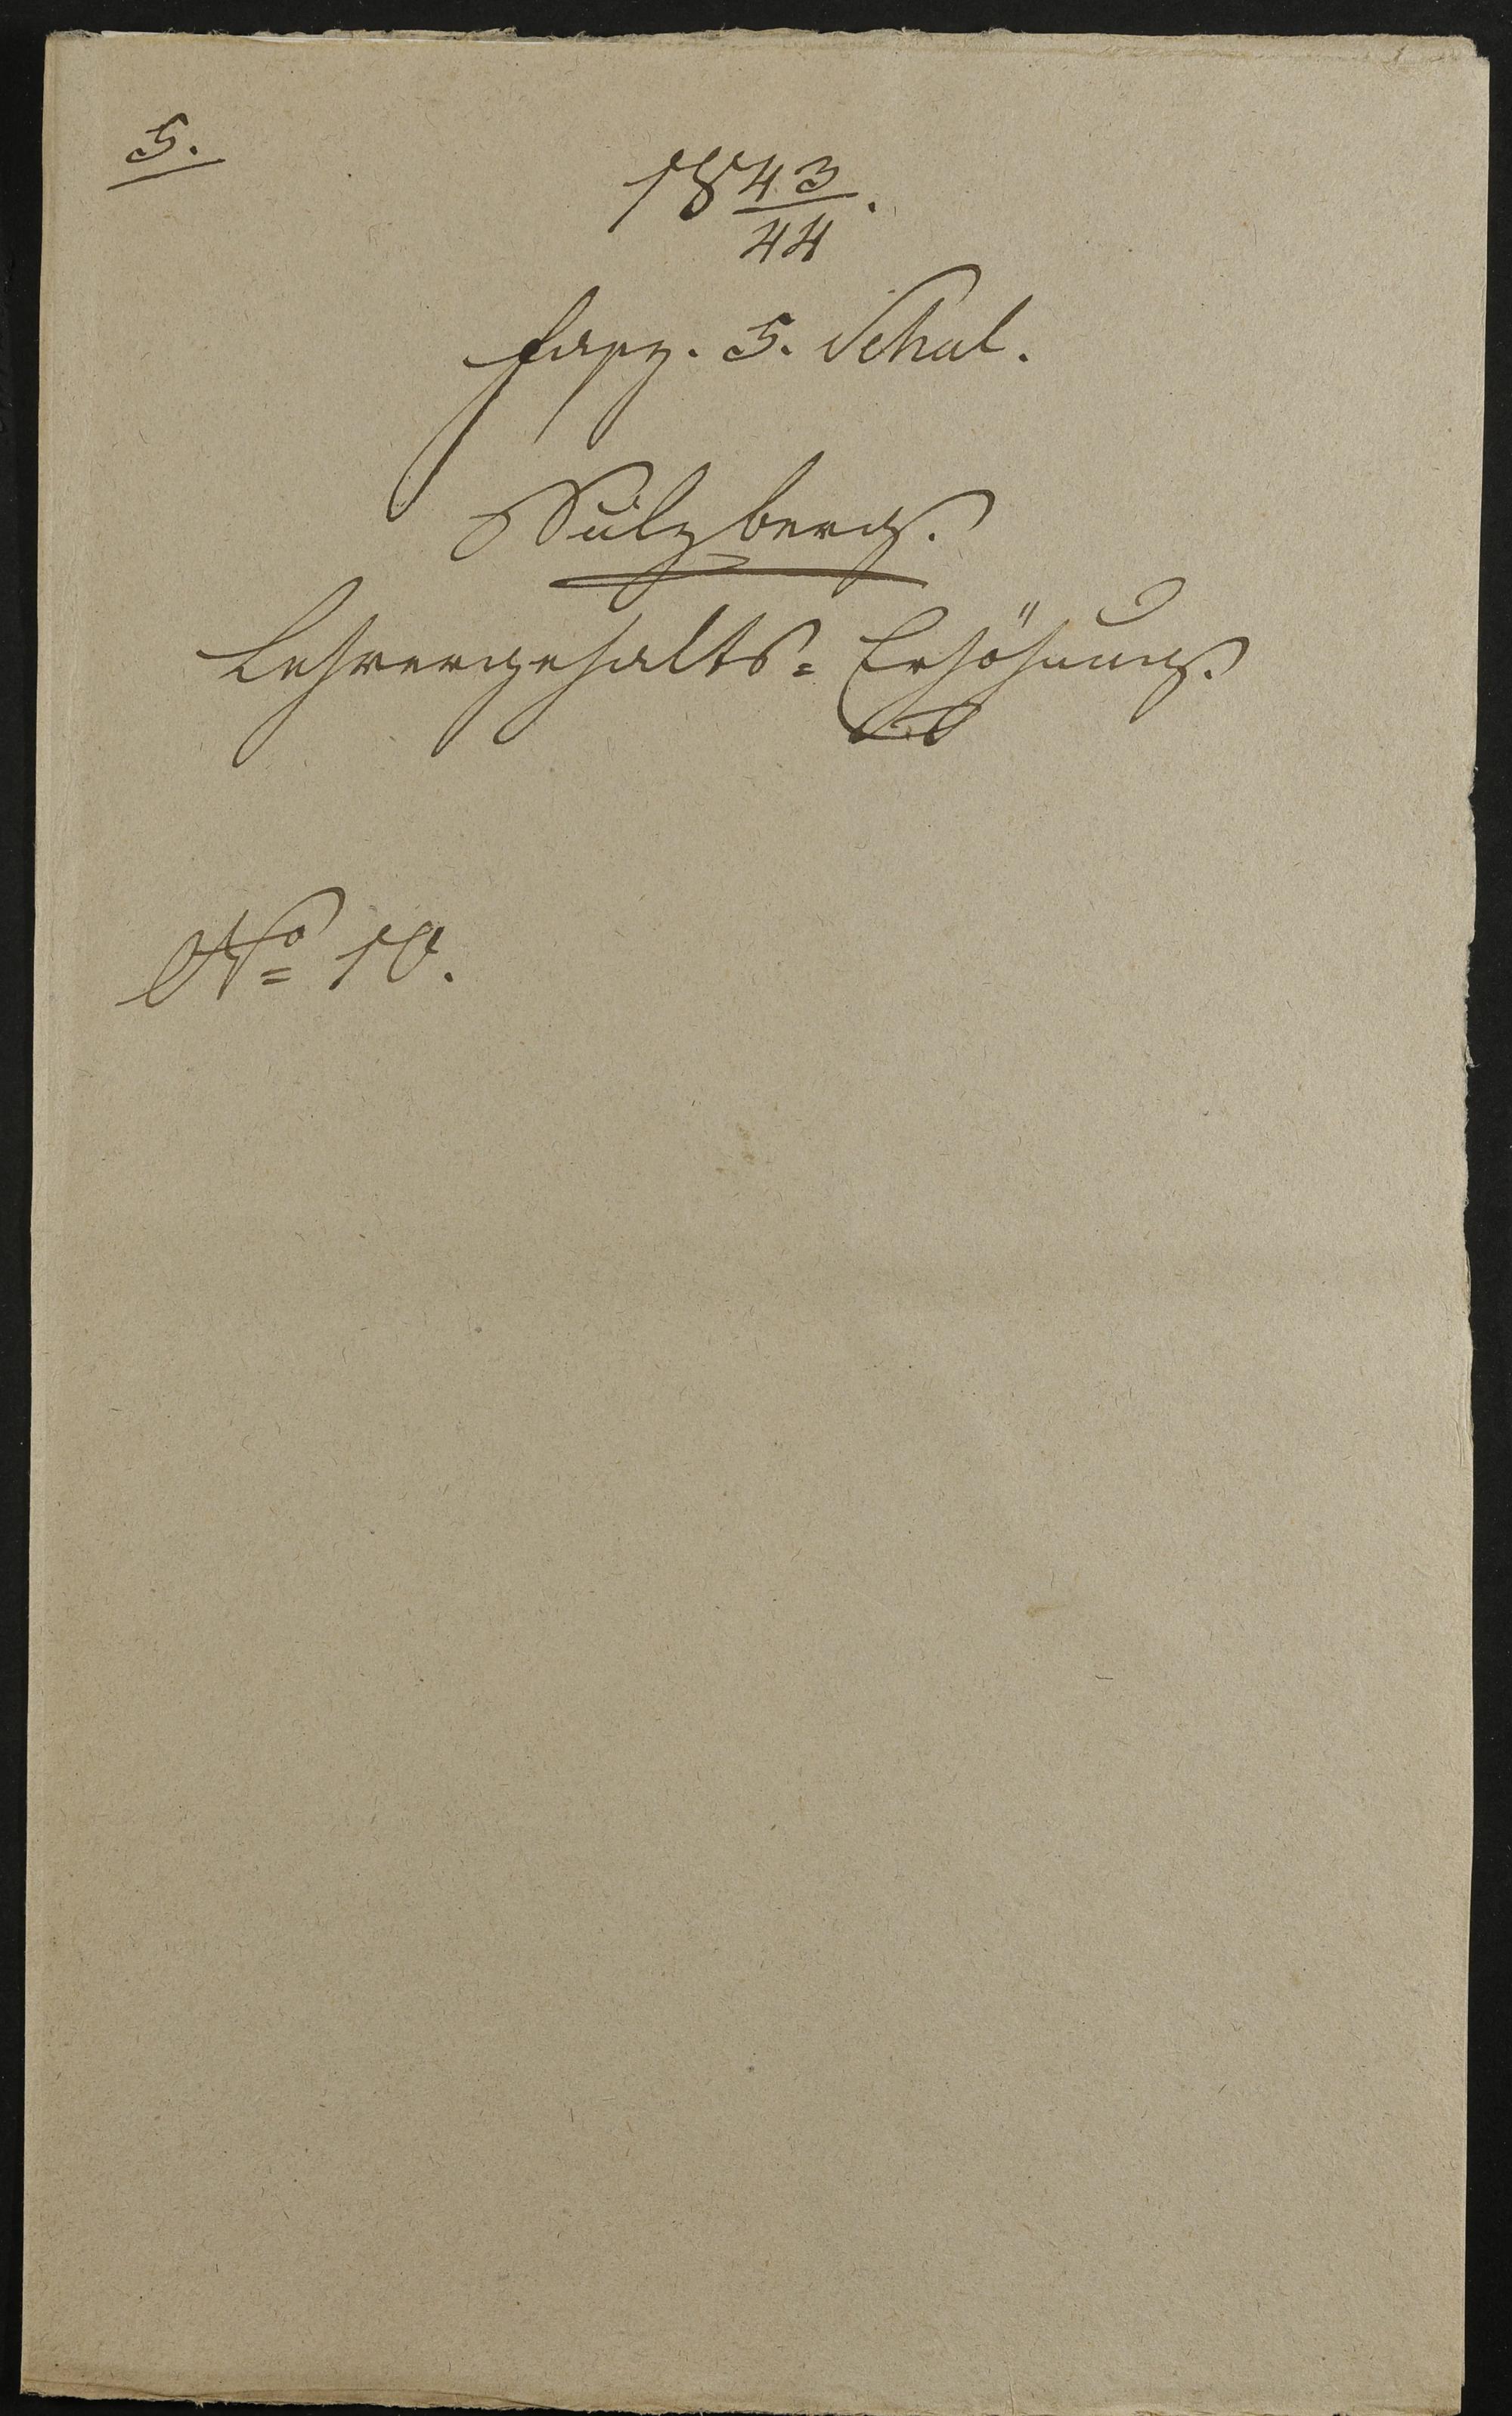 5.
18 43/44.
Fasz. 5. Schul.
Sulzberg.
Lehrergehalts= Erhöhung.
No 10.